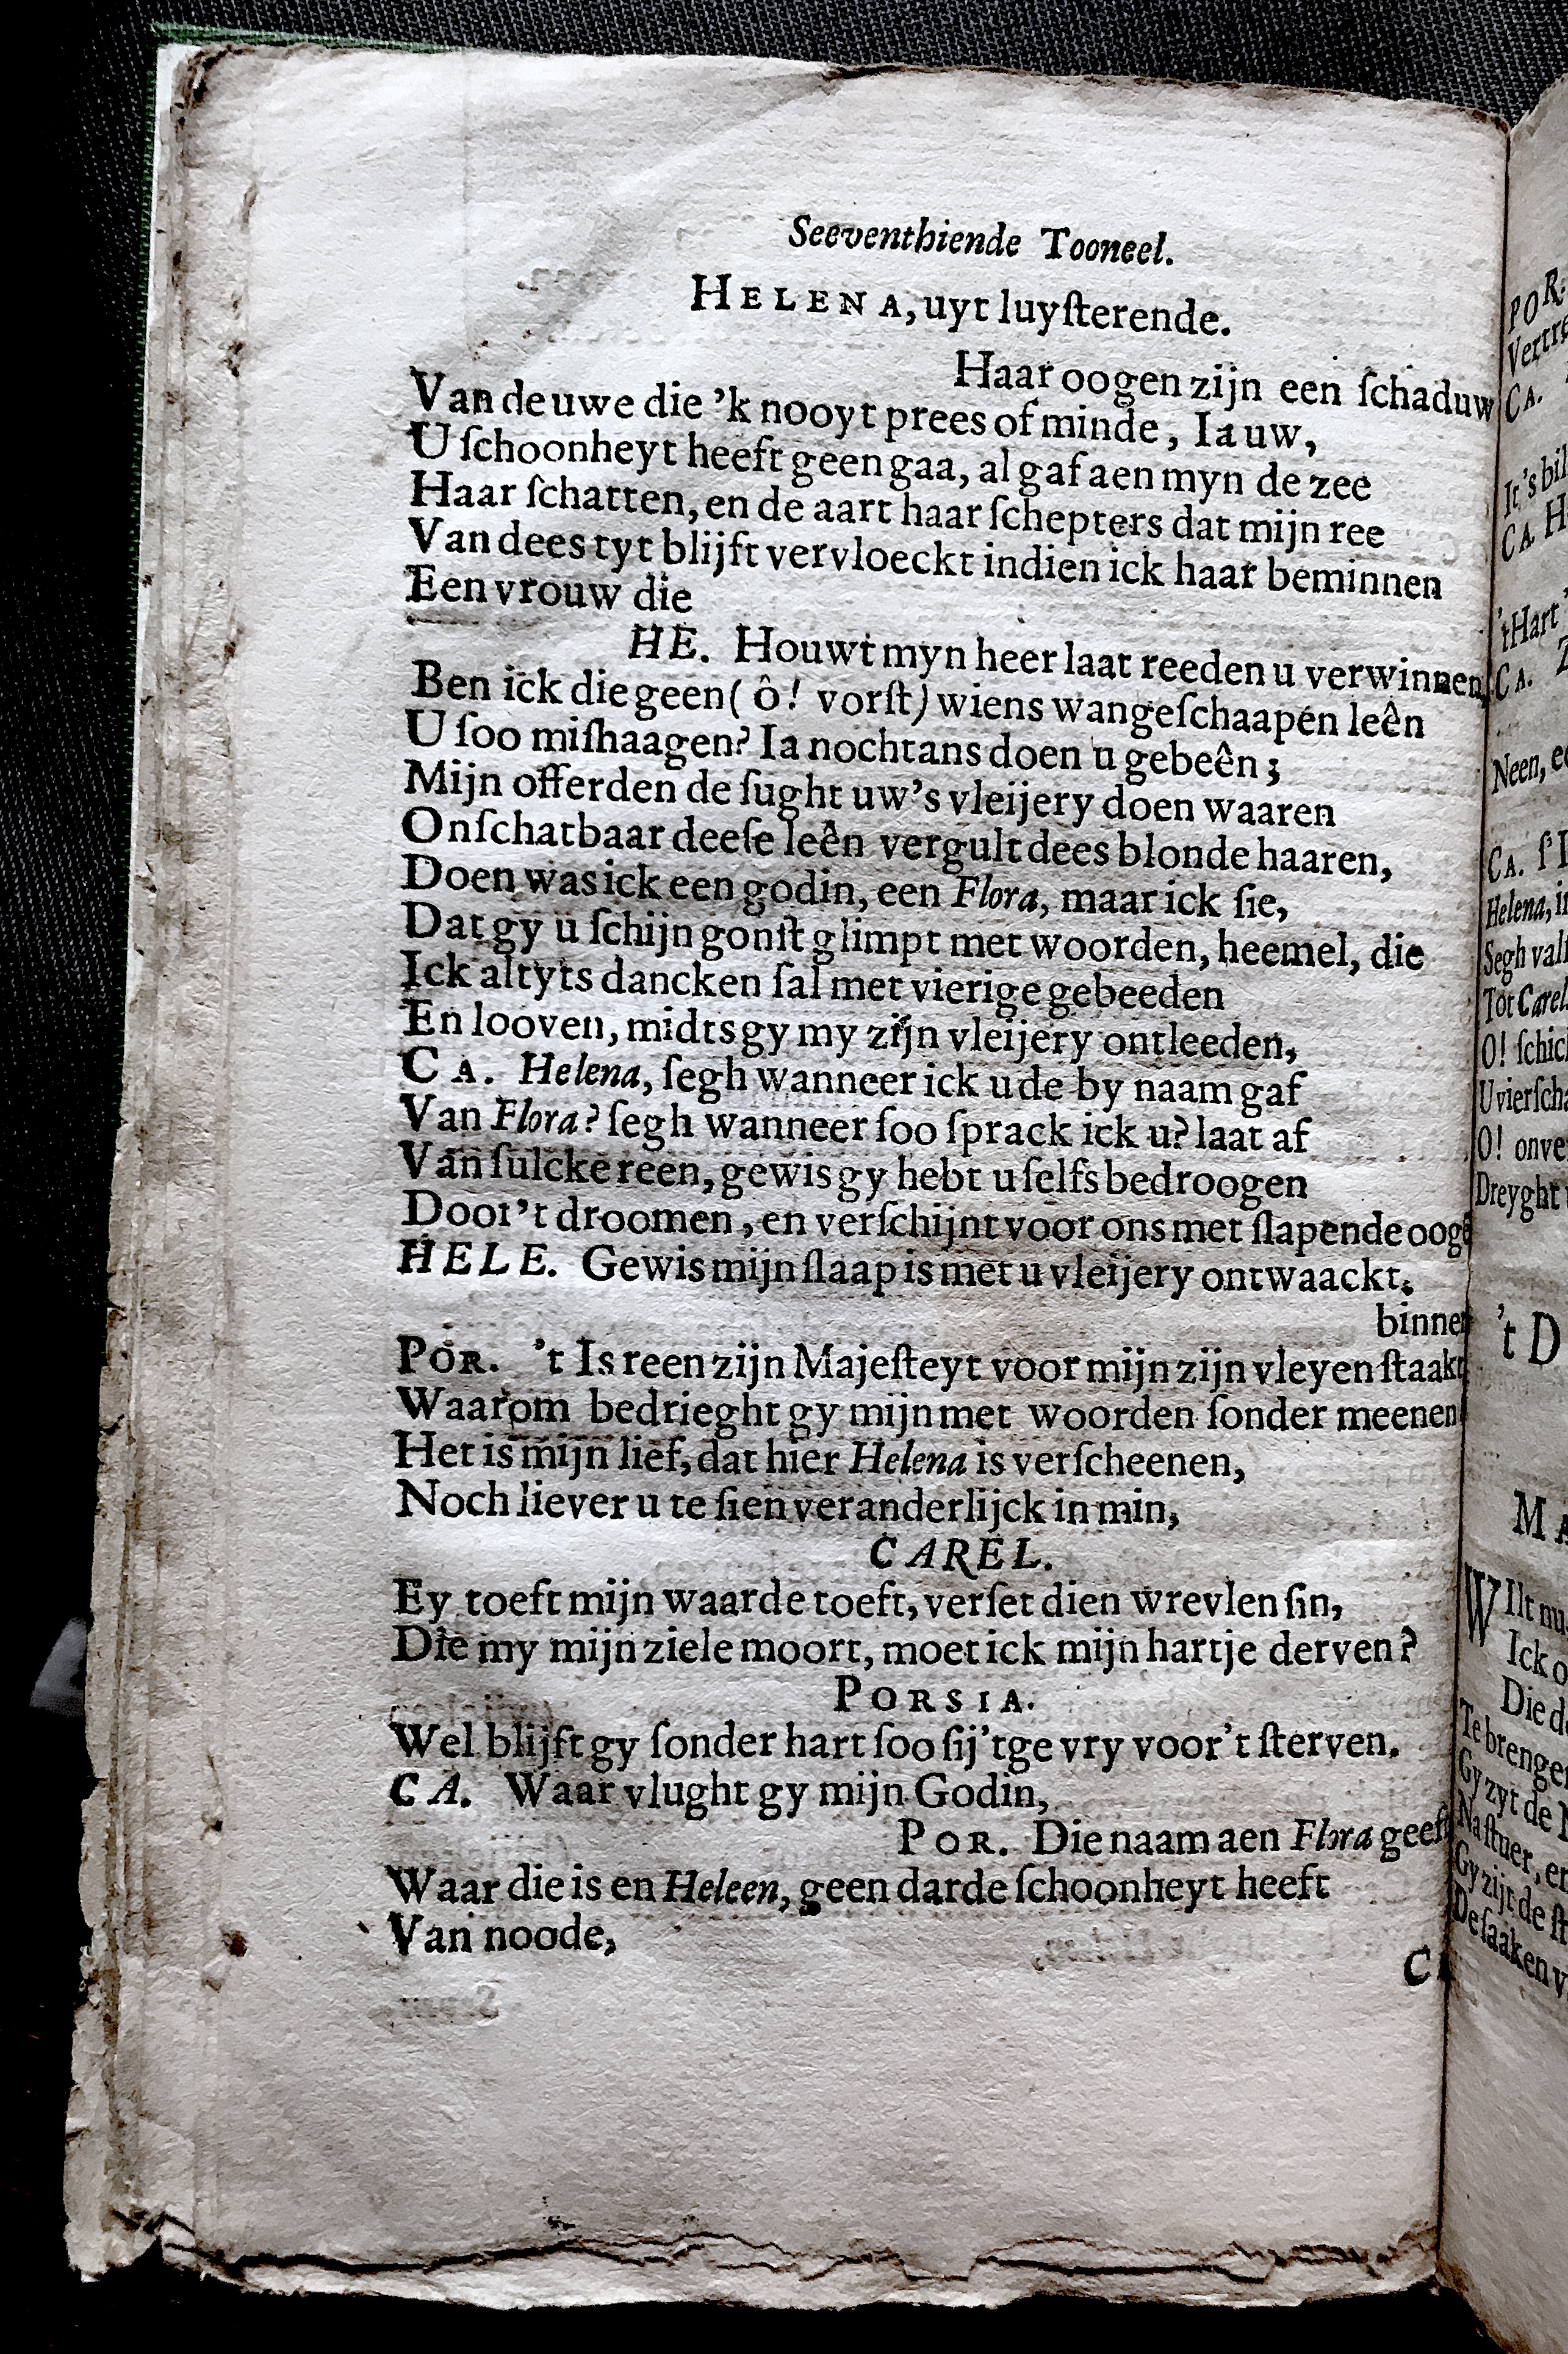 Seeventhiende Tooneel.
HELENA, uyt luyſterende.
Haar oogen zijn een ſchaduw
Van de uwe die 'k nooyt prees of minde, Ia uw,
U ſchoonheyt heeft geen gaa, al gaf aen myn de zee
Haar ſchatten, en de aart haar ſchepters dat mijn ree
Van dees tyt blijft vervloeckt indien ick haar beminnen
Een vrouw die
HE. Houwt myn heer laat reeden u verwinnen,
Ben ick die geen ( ô! vorſt) wiens wangeſchaapen leên
U ſoo miſhaagen? Ia nochtans doen u gebeên;
Mijn offerden de ſught uw's vleijery doen waaren
Onſchatbaar deeſe leên vergult dees blonde haaren,
Doen was ick een godin, een Flora, maar ick ſie,
Dat gy u ſchijn gonſt glimpt met woorden, heemel, die
Ick altyts dancken ſal met vierige gebeeden
En looven, midts gy my zijn vleijery ontleeden,
CA. Helena, ſegh wanneer ick u de by naam gaf
Van Flora? ſegh wanneer ſoo ſprack ick u? laat af
Van ſulcke reen, gewis gy hebt u ſelfs bedroogen
Door't droomen, en verſchijnt voor ons met ſlapende ooge
HELE. Gewis mijn ſlaap is met u vleijery ontwaackt.
binne
POR. 't Is reen zijn Majeſteyt voor mijn zijn vleyen ſtaakt
Waarom bedrieght gy mijn met woorden ſonder meenen
Het is mijn lief, dat hier Helena is verſcheenen,
Noch liever u te ſien veranderlijck in min,
CAREL.
Ey toeft mijn waarde toeft, verſet dien wrevlen ſin,
Die my mijn ziele moort, moet ick mijn hartje derven?
PORSIA.
Wel blijft gy ſonder hart ſoo ſij'tge vry voor't ſterven.
CA. Waar vlught gy mijn Godin,
POR. Die naam aen Flora geeft
Waar die is en Heleen, geen darde ſchoonheyt heeft
Van noode,
POR.
CA.
It's bil
CA. H
'tHart
CA.
Neen,
CA.
Helena,
Segh
Tot Carel
O! ſchic
O! onve
Dreyght
't D
M
WIlt nu
Ick o
Die d
Te brenge
Gy zyt de
Na ſtuer,
Gy zijt de
De ſaaken